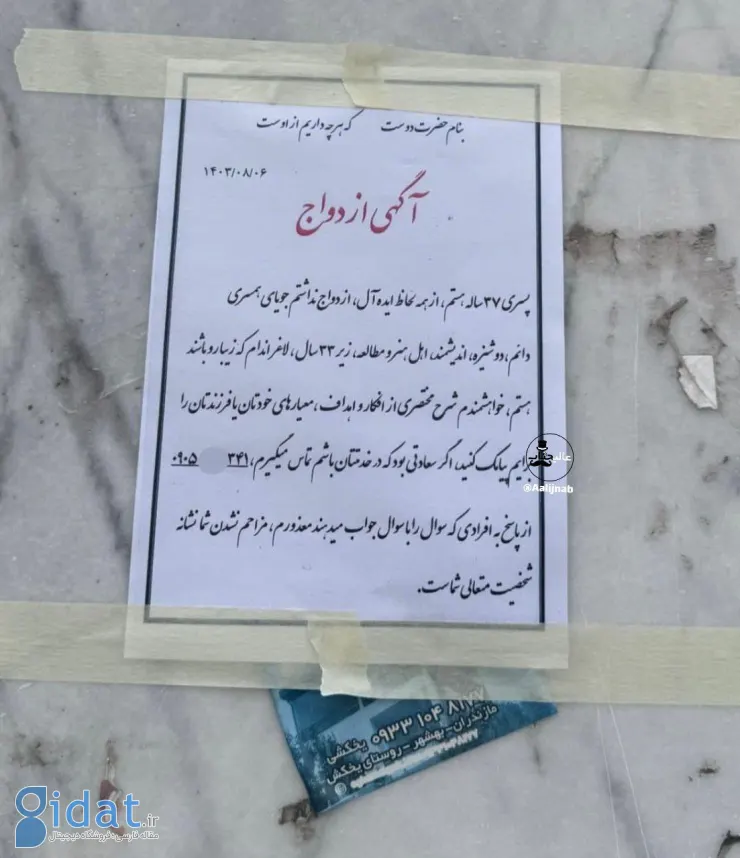 بنام حضرت دوست که هرچه داریم از اوست
۱۴۰۳/۰۸/۰۶
آگهی ازدواج
پسری ۳۷ ساله هستم، از همه لحاظ ایده آل، ازدواج نداشتم جویای همسری
دائم، دوشیزه، اندیشمند، اهل هنر و مطالعه، زیر ۳۳ سال، لاغر اندام که زیبارو باشند
هستم، خواهشندم شرح مختصری از افکار و اهداف، معیارهای خودتان یا فرزندتان را
برایم پیامک کنید، اگر سعادتی بود که در خدمتتان باشم تماس میگیرم، ۳۴۱ ۰۹۰۵
از پاسخ به افرادی که سوال را با سوال جواب میدهند معذورم، مزاحم نشدن شما نشانه
شخصیت متعالی شماست.
عالیجناب
@Aalijnab
یخکشی ۰۹۳۳ ۱۰۴
مازندران - بهشهر - روستای یخکش
gidat.ir
مقاله فارسی - فروشگاه دیجیتال